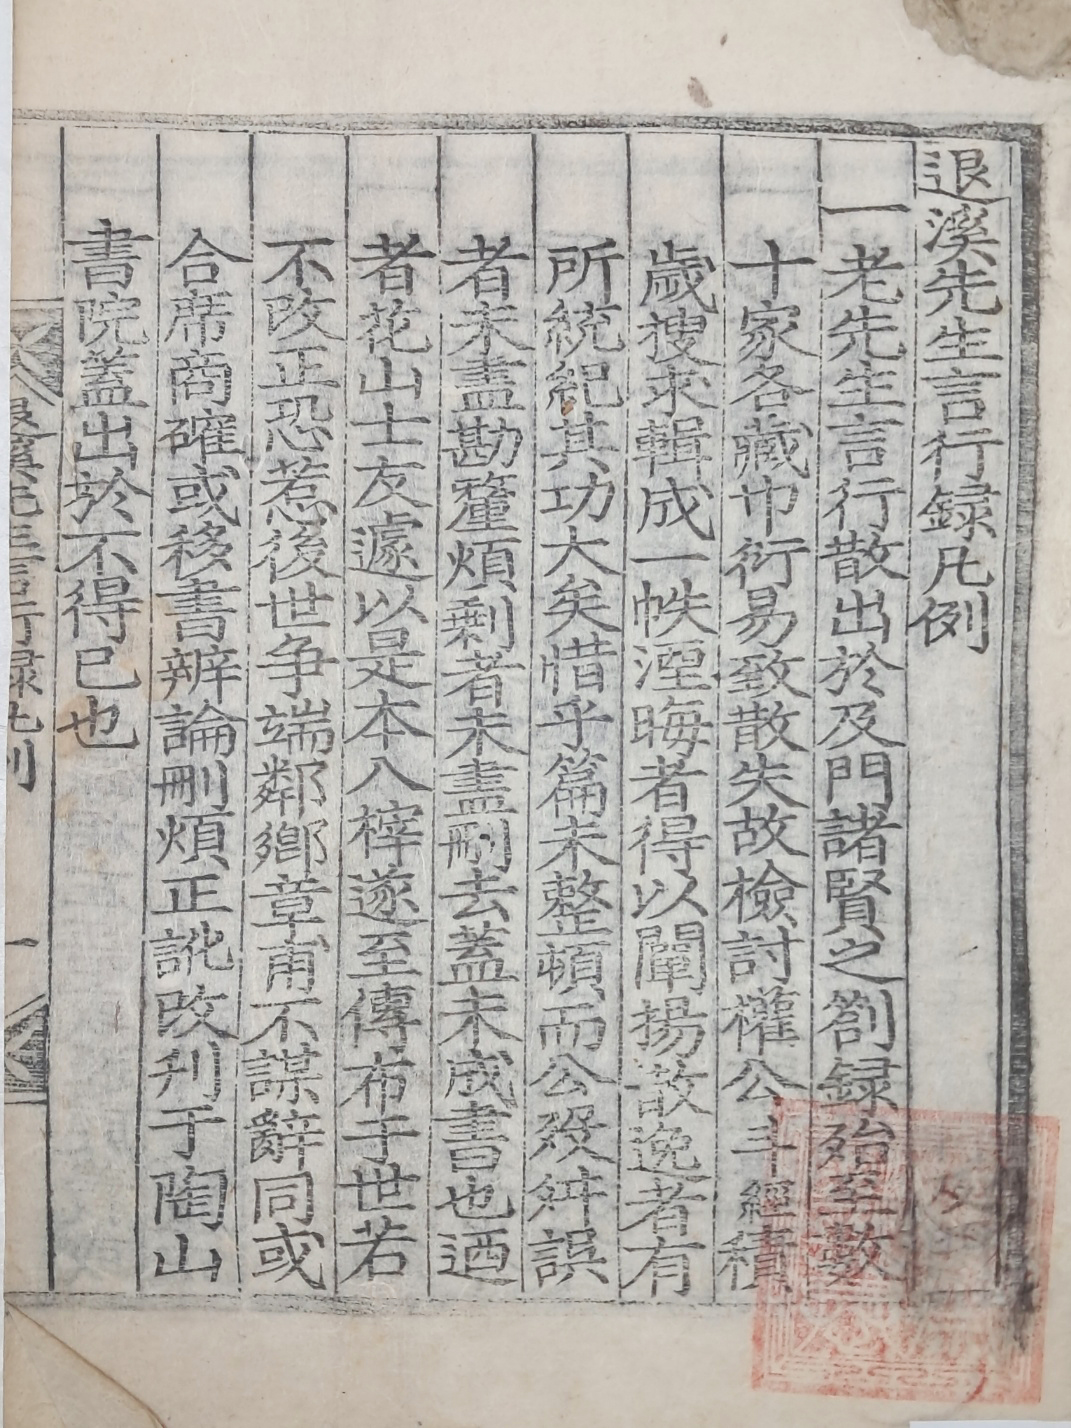 退溪先生言行録凡例
一老先生言行散出於及門諸賢之劄録殆至數
十家各藏巾衍易致散失故檢討權公斗經積
歲搜求輯成一帙湮晦者得以闡揚散逸者有
所統紀其功大矣惜乎篇未整頓而公殁舛誤
者未盡勘釐煩剩者未盡刪去蓋未成書也迺
者花山士友遽以是本入梓遂至傳布于世若
不改正恐惹後世争端鄰鄉章甫不謀辭同或
合席商確或移書辨論刪煩正訛改刋于陶山
書院蓋出於不得已也
退溪先生言行録凡例 一